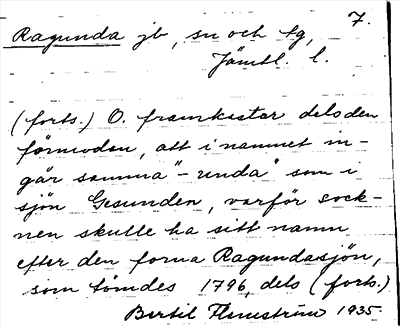 7.
Ragunda jb, sn och tg,
Jämtl. l.
(forts.) O. framkastar dels den
förmodan, att i namnet in-
går samma "-unda" som i
sjön Gesunden, varför sock-
nen skulle ha sitt namn
efter den forna Ragundasjön,
som tömdes 1796, dels (forts.)
Bertil Flemström 1935.